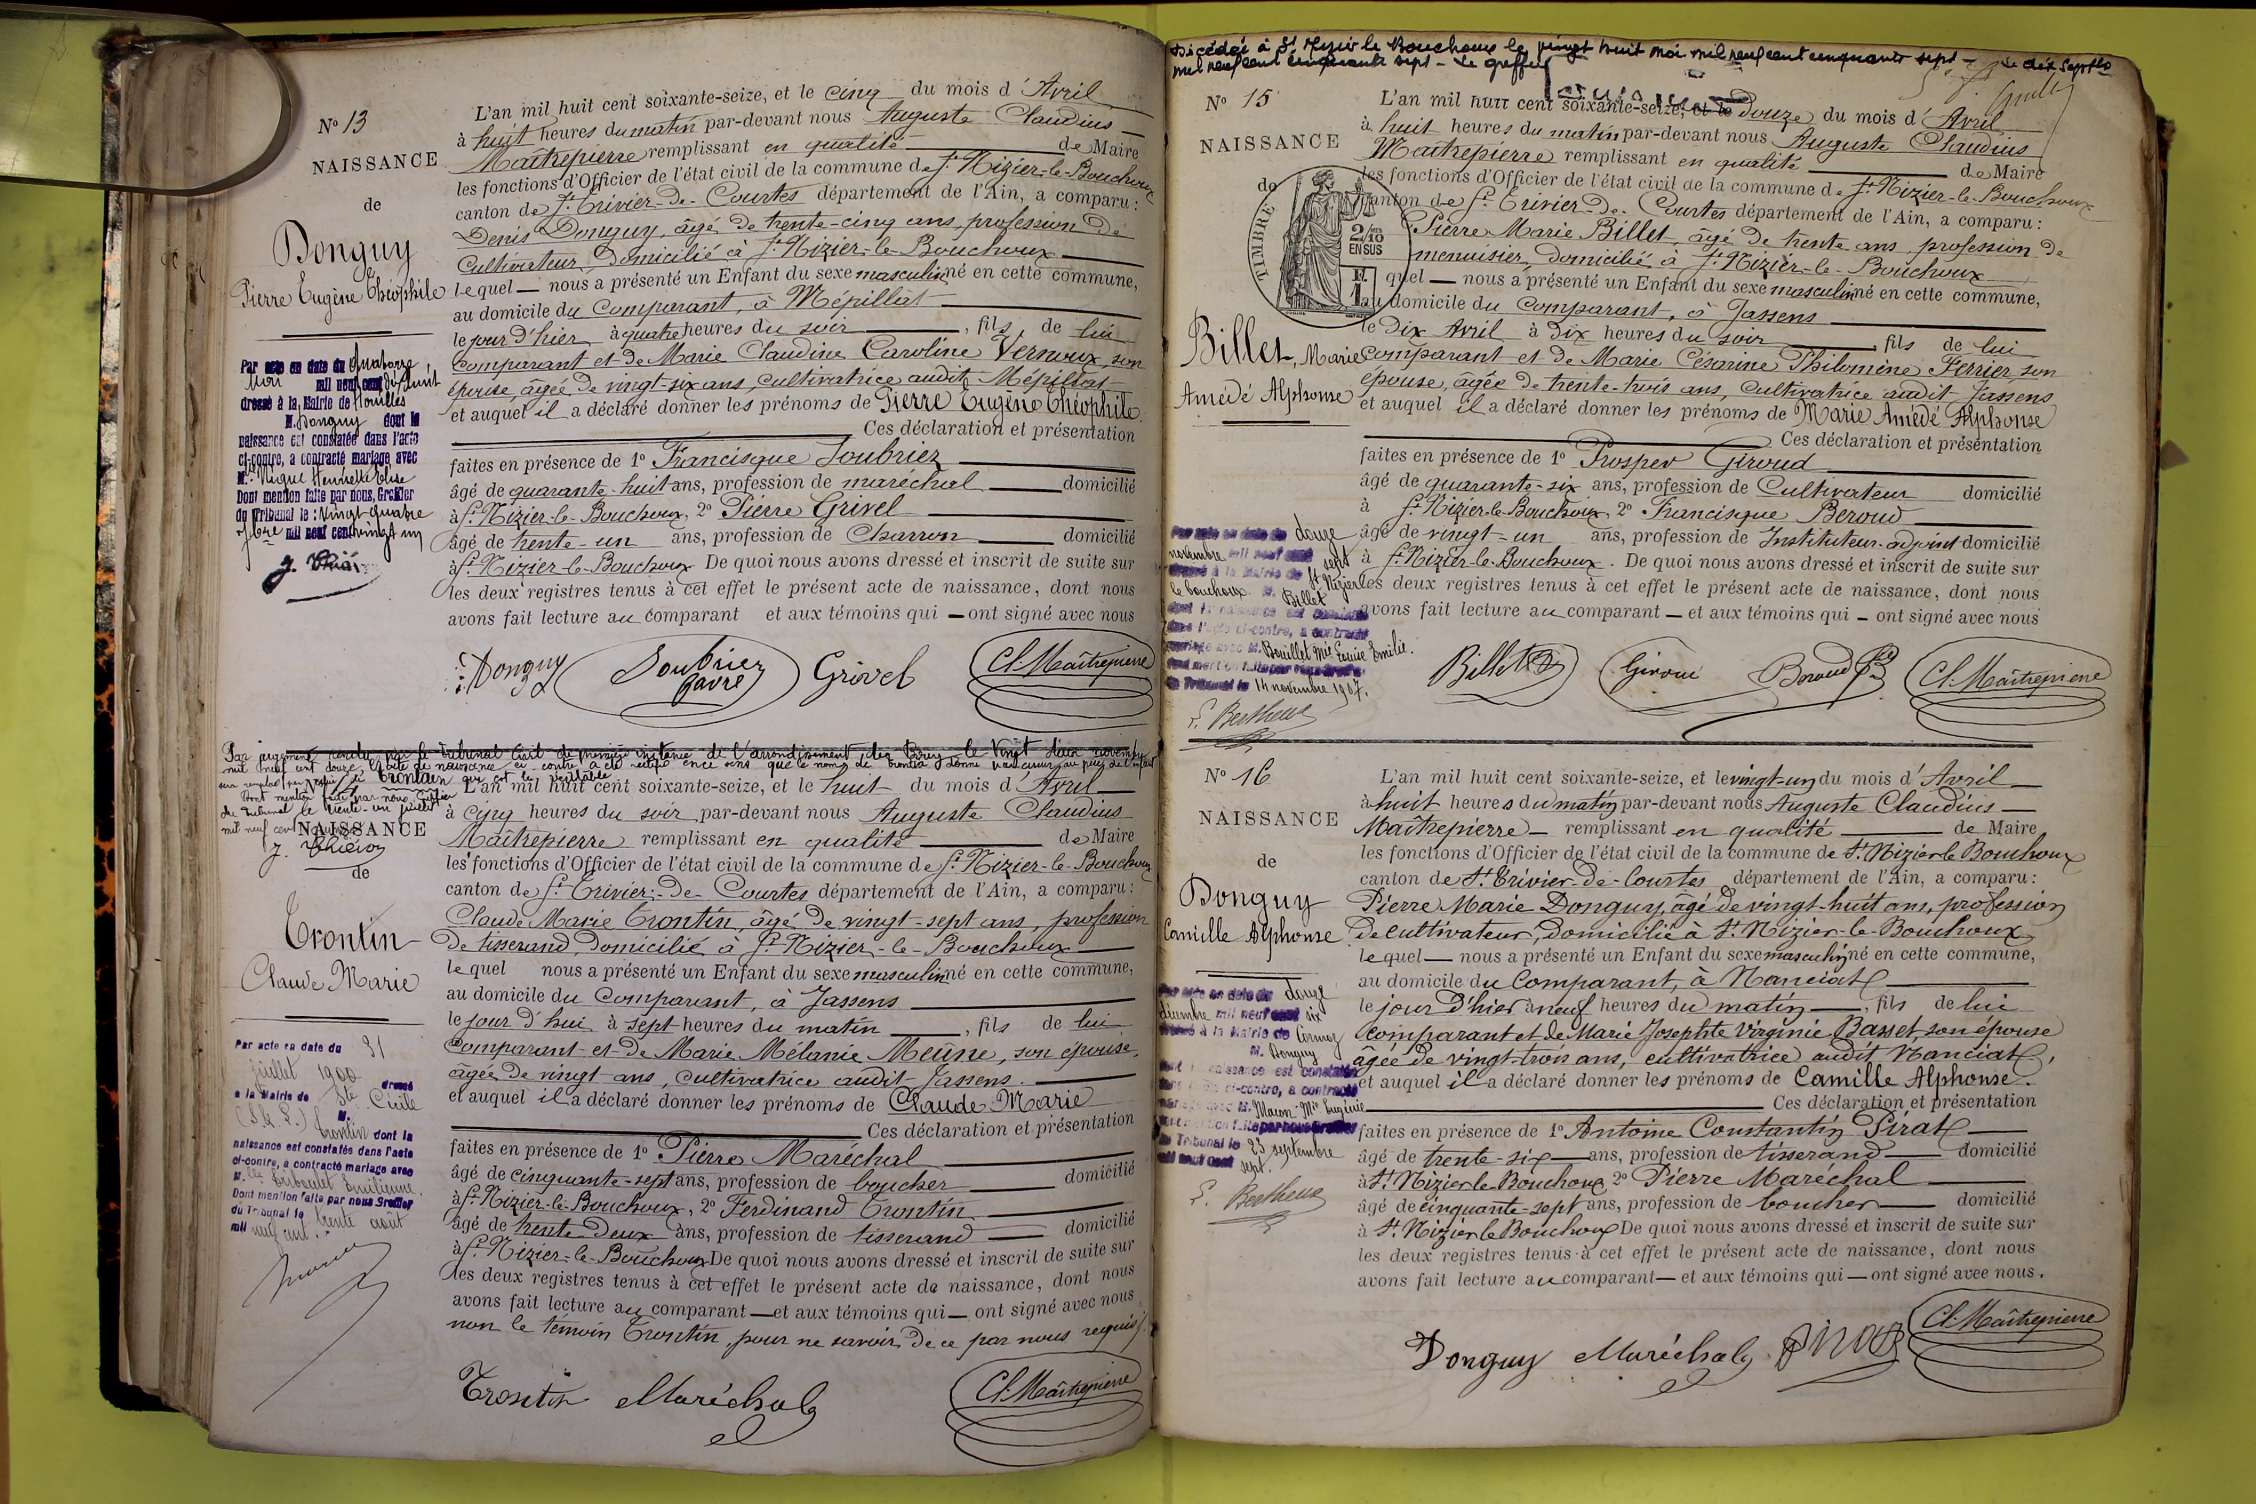 N° 13
NAISSANCE
de
Donguy
Pierre Eugène Théophile
Par acte en date du quatorze
Mai mil neuf cent dix huit
dressé à la Mairie de Houilles
M. Donguy dont la
naissance est constatée dans l'acte
ci-contre, a contracté mariage avec
M. Henriette Elise
Dont mention faite par nous, Greffier
du Tribunal le : vingt quatre
mil neuf cent vingt un
L'an mil huit cent soixante-seize, et le cinq du mois d'Avril
à huit heures du matin par-devant nous Auguste Claudius
Maîtrepierre remplissant en qualité de Maire
les fonctions d'Officier de l'état civil de la commune de St Nizier-le-Bouchoux
canton de St Trivier-de-Courtes département de l'Ain, a comparu :
Denis Donguy, âgé de trente-cinq ans, profession de
Cultivateur, domicilié à St Nizier-le-Bouchoux
lequel nous a présenté un Enfant du sexe masculin né en cette commune,
au domicile du comparant, à Mépillat
le jour d'hier à quatre heures du soir, fils de lui
comparant et de Marie Claudine Caroline Vernoux, son
épouse, âgée de vingt-six ans, cultivatrice audit Mépillat
et auquel il a déclaré donner les prénoms de Pierre Eugène Théophile.
Ces déclaration et présentation
faites en présence de 1° Francisque Soubriez
âgé de quarante-huit ans, profession de maréchal domicilié
à St Nizier-le-Bouchoux, 2° Pierre Grivel
âgé de trente-un ans, profession de Charron domicilié
à St Nizier-le-Bouchoux De quoi nous avons dressé et inscrit de suite sur
les deux registres tenus à cet effet le présent acte de naissance, dont nous
avons fait lecture au comparant et aux témoins qui ont signé avec nous
Donguy Soubriez Grivel Cl. Maîtrepierre
Par jugement rendu par le Tribunal Civil de première instance de l'arrondissement de Bourg le vingt deux novembre
mil neuf cent douze, l'acte de naissance ci contre a été rectifié en ce sens que le nom de
sera remplacé par celui de Trontain qui est le véritable
Dont mention faite par nous Greffier
du Tribunal le trente un juillet
mil neuf cent
N° 14
NAISSANCE
de
Trontin
Claude Marie
Par acte en date du 31
juillet 1900 dressé
à la Mairie de Ste Cécile
(S. & L.) M. Trontin dont la
naissance est constatée dans l'acte
ci-contre, a contracté mariage avec
M. Emilienne.
Dont mention faite par nous Greffier
du Tribunal le trente août
mil neuf cent.
L'an mil huit cent soixante-seize, et le huit du mois d'Avril
à cinq heures du soir par-devant nous Auguste Claudius
Maîtrepierre remplissant en qualité de Maire
les fonctions d'Officier de l'état civil de la commune de St Nizier-le-Bouchoux
canton de St Trivier-de-Courtes département de l'Ain, a comparu :
Claude Marie Trontin, âgé de vingt-sept ans, profession
de tisserand, domicilié à St Nizier-le-Bouchoux
lequel nous a présenté un Enfant du sexe masculin né en cette commune,
au domicile du comparant, à Jassens
le jour d'hui à sept heures du matin, fils de lui
comparant et de Marie Mélanie Meûne, son épouse,
âgée de vingt ans, cultivatrice audit Jassens.
et auquel il a déclaré donner les prénoms de Claude Marie
Ces déclaration et présentation
faites en présence de 1° Pierre Maréchal
âgé de cinquante-sept ans, profession de boucher domicilié
à St Nizier-le-Bouchoux, 2° Ferdinand Trontin
âgé de trente-deux ans, profession de tisserand domicilié
à St Nizier-le-Bouchoux De quoi nous avons dressé et inscrit de suite sur
les deux registres tenus à cet effet le présent acte de naissance, dont nous
avons fait lecture au comparant et aux témoins qui ont signé avec nous
non le témoin Trontin, pour ne savoir, de ce par nous requis.
Trontin Maréchal Cl. Maîtrepierre
Décédé à St Nizier le Bouchoux le vingt huit mai mil neuf cent cinquante sept - Le dix septbre
mil neuf cent cinquante sept - Le greffier
N° 15
NAISSANCE
de
TIMBRE
2/10
EN SUS
Billet, Marie
Amédé Alphonse
Par acte en date du douze
novembre mil neuf cent sept
dressé à la Mairie de St Nizier
le Bouchoux M. Billet
dont la naissance est constatée
dans l'acte ci-contre, a contracté
mariage avec M. Bouillet Mie Louise Emilie.
Dont mention faite par nous Greffier
du Tribunal le 14 novembre 1907.
L. Bertheus
L'an mil huit cent soixante-seize, et le douze du mois d'Avril
à huit heures du matin par-devant nous Auguste Claudius
Maîtrepierre remplissant en qualité de Maire
les fonctions d'Officier de l'état civil de la commune de St Nizier-le-Bouchoux
canton de St Trivier-de-Courtes département de l'Ain, a comparu :
Pierre Marie Billet, âgé de trente ans, profession de
menuisier, domicilié à St Nizier-le-Bouchoux
quel nous a présenté un Enfant du sexe masculin né en cette commune,
au domicile du comparant, à Jassens
le dix Avril à dix heures du soir, fils de lui
comparant et de Marie Césarine Philomène Ferrier, son
épouse, âgée de trente-trois ans, cultivatrice audit Jassens
et auquel il a déclaré donner les prénoms de Marie Amédé Alphonse
Ces déclaration et présentation
faites en présence de 1° Prosper Giroud
âgé de quarante-six ans, profession de Cultivateur domicilié
à St Nizier-le-Bouchoux, 2° Francisque Beroud
âgé de vingt-un ans, profession de Instituteur-adjoint domicilié
à St Nizier-le-Bouchoux. De quoi nous avons dressé et inscrit de suite sur
les deux registres tenus à cet effet le présent acte de naissance, dont nous
avons fait lecture au comparant et aux témoins qui ont signé avec nous
Billet Giroud Beroud Cl. Maîtrepierre
N° 16
NAISSANCE
de
Donguy
Camille Alphonse
Par acte en date du douze
décembre mil neuf cent six
dressé à la Mairie de
M. Donguy
dont la naissance est constatée
dans l'acte ci-contre, a contracté
mariage avec M. Mie Eugénie
Dont mention faite par nous Greffier
du Tribunal le 23 septembre
mil neuf cent sept.
L. Bertheus
L'an mil huit cent soixante-seize, et le vingt-un du mois d'Avril
à huit heures du matin par-devant nous Auguste Claudius
Maîtrepierre remplissant en qualité de Maire
les fonctions d'Officier de l'état civil de la commune de St Nizier le Bouchoux
canton de St Trivier-de-Courtes département de l'Ain, a comparu :
Pierre Marie Donguy, âgé de vingt-huit ans, profession
de cultivateur, domicilié à St Nizier-le-Bouchoux
lequel nous a présenté un Enfant du sexe masculin né en cette commune,
au domicile du comparant, à Nanciat
le jour d'hier à neuf heures du matin, fils de lui
comparant et de Marie Josephte Virginie Basset, son épouse
âgée de vingt-trois ans, cultivatrice audit Nanciat,
et auquel il a déclaré donner les prénoms de Camille Alphonse.
Ces déclaration et présentation
faites en présence de 1° Antoine Constantin Pirat
âgé de trente-six ans, profession de tisserand domicilié
à St Nizier le Bouchoux 2° Pierre Maréchal
âgé de cinquante-sept ans, profession de boucher domicilié
à St Nizier le Bouchoux De quoi nous avons dressé et inscrit de suite sur
les deux registres tenus à cet effet le présent acte de naissance, dont nous
avons fait lecture au comparant et aux témoins qui ont signé avec nous.
Donguy Maréchal Pirat Cl. Maîtrepierre